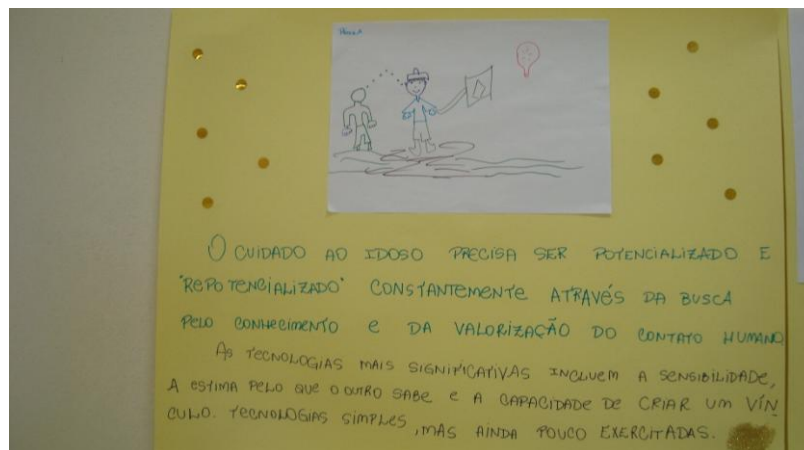 O CUIDADO AO IDOSO PRECISA SER POTENCIALIZADO E
"REPOTENCIALIZADO" CONSTANTEMENTE ATRAVÉS DA BUSCA
PELO CONHECIMENTO E DA VALORIZAÇÃO DO CONTATO HUMANO
AS TECNOLOGIAS MAIS SIGNIFICATIVAS INCLUEM A SENSIBILIDADE,
A ESTIMA PELO QUE O OUTRO SABE E A CAPACIDADE DE CRIAR UM VÍN
CULO. TECNOLOGIAS SIMPLES, MAS AINDA POUCO EXERCITADAS.